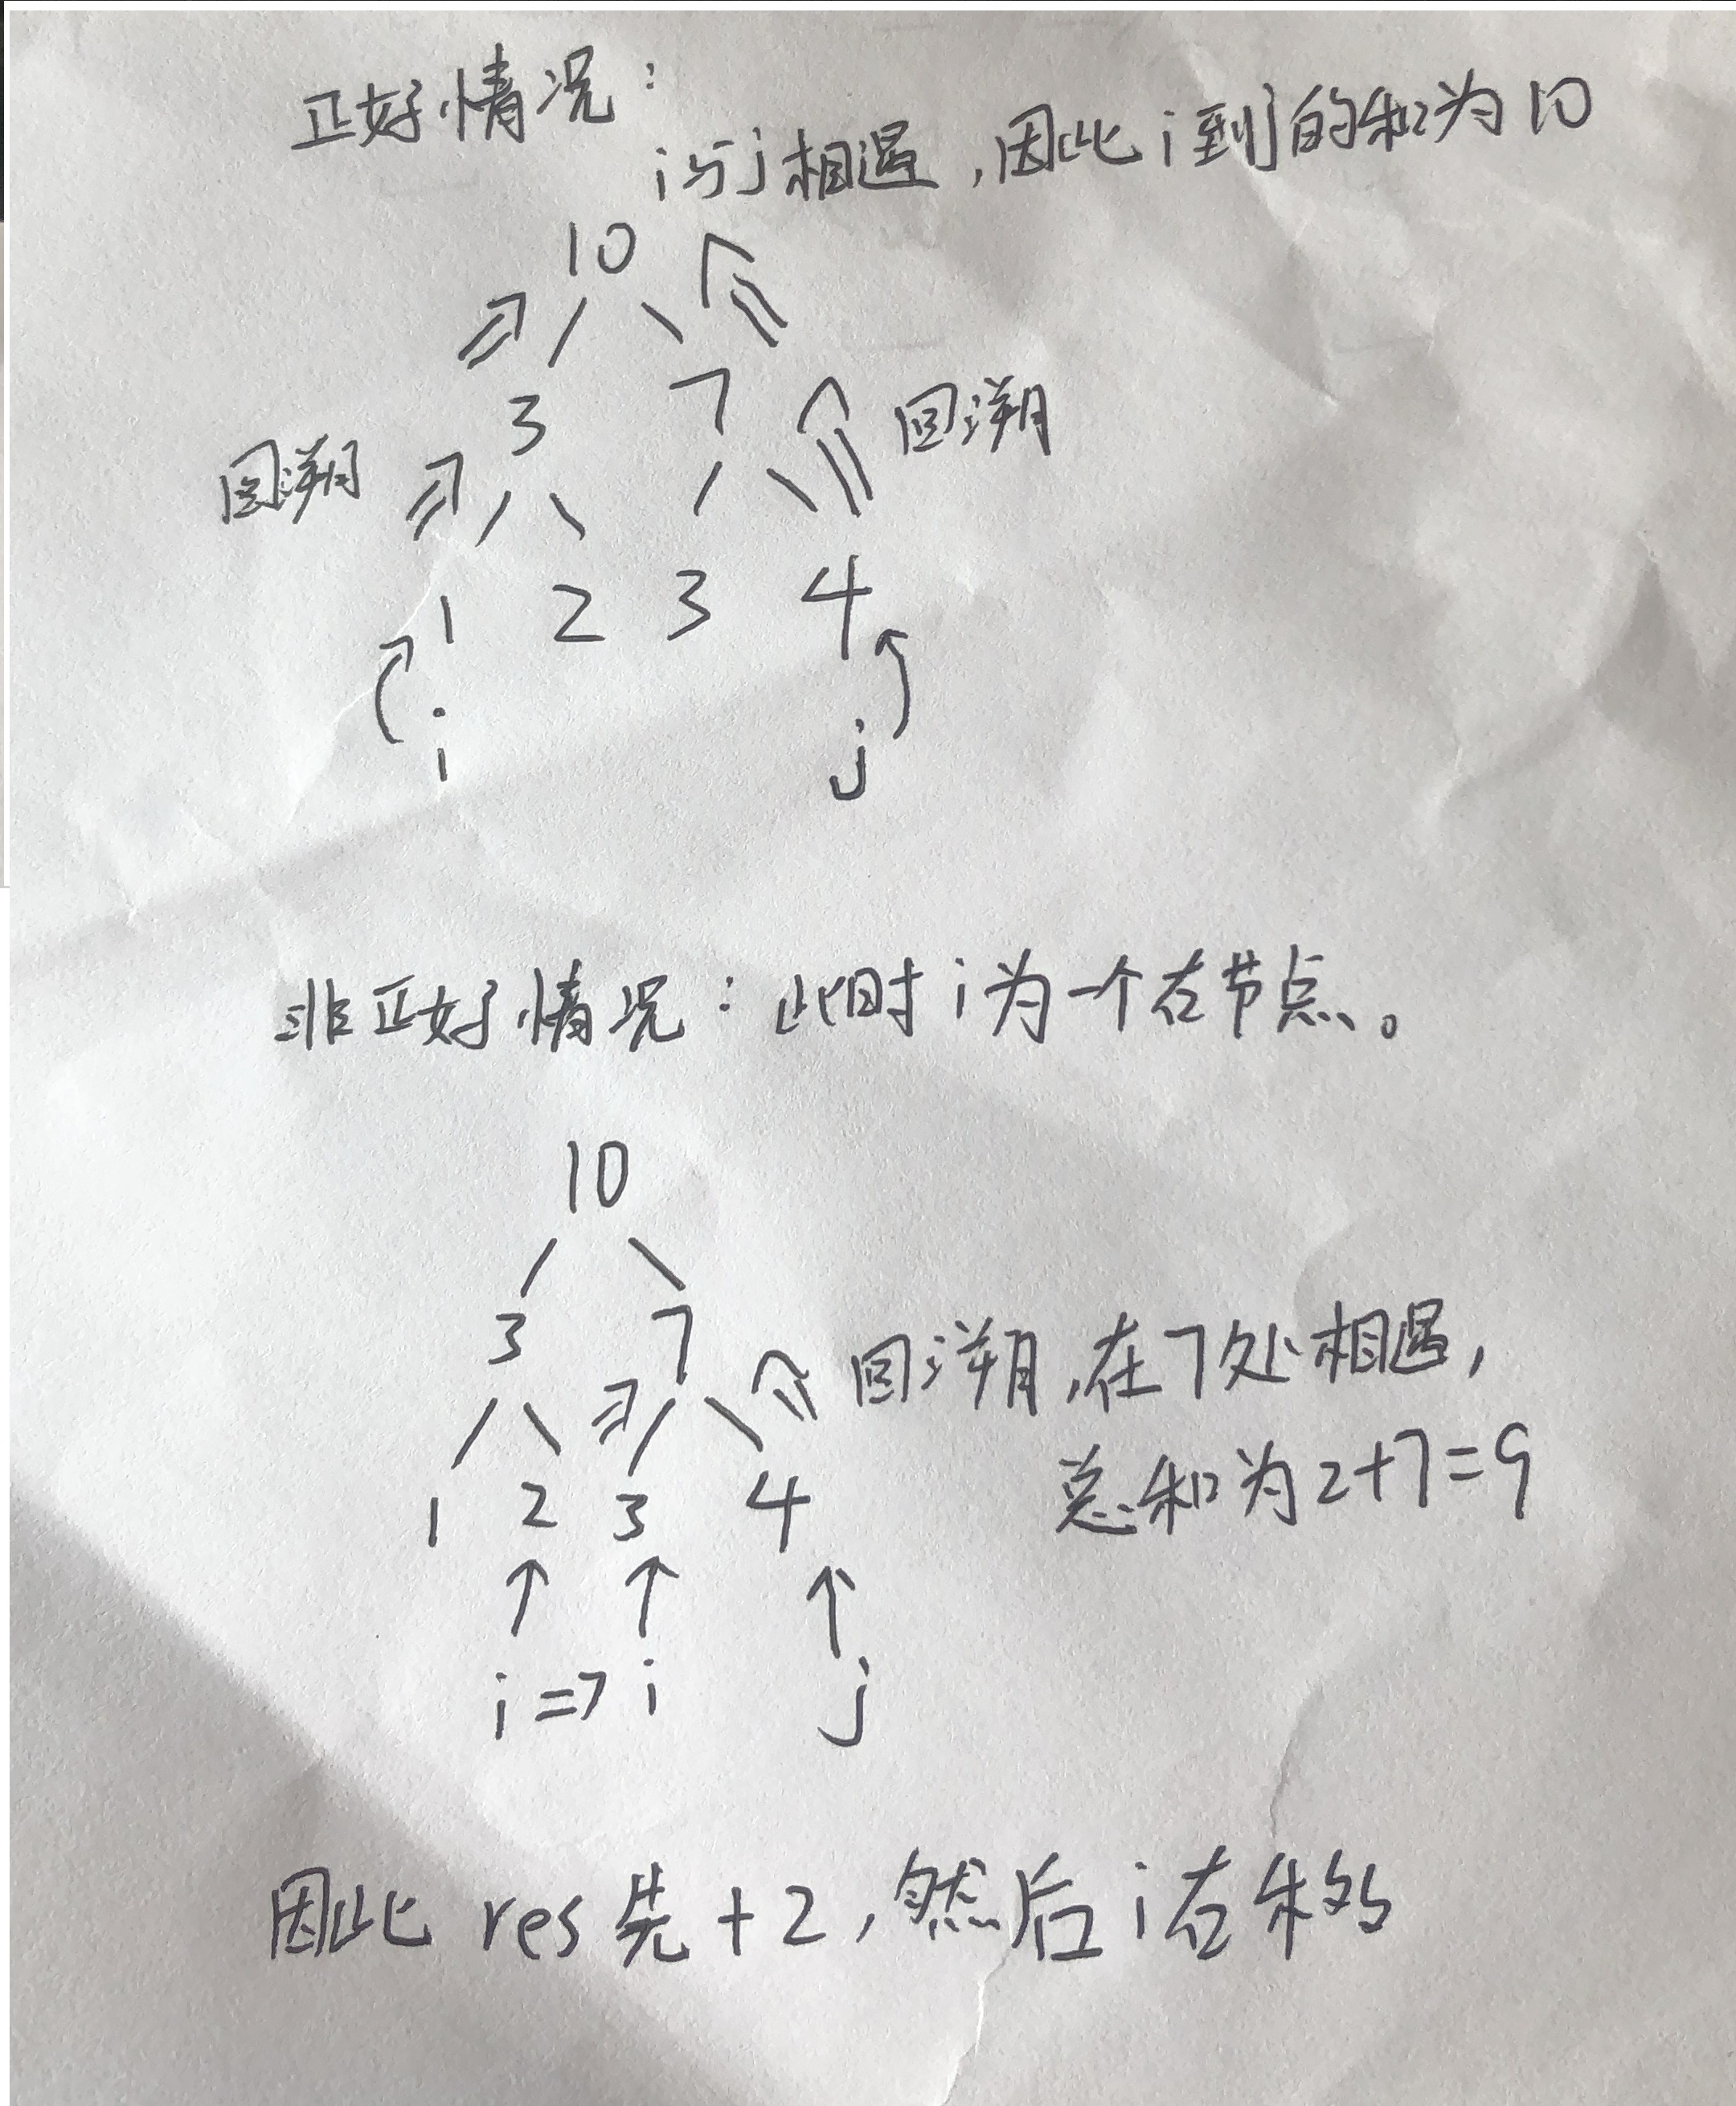 正好情况：
i与j相遇，因此i到j的和为10
10
3 7
回溯 回溯
1 2 3 4
i j
非正好情况：此时i为一个右节点。
10
3 7
回溯，在7处相遇，
1 2 3 4
总和为2+7=9
i => i j
因此res先+2，然后i右移